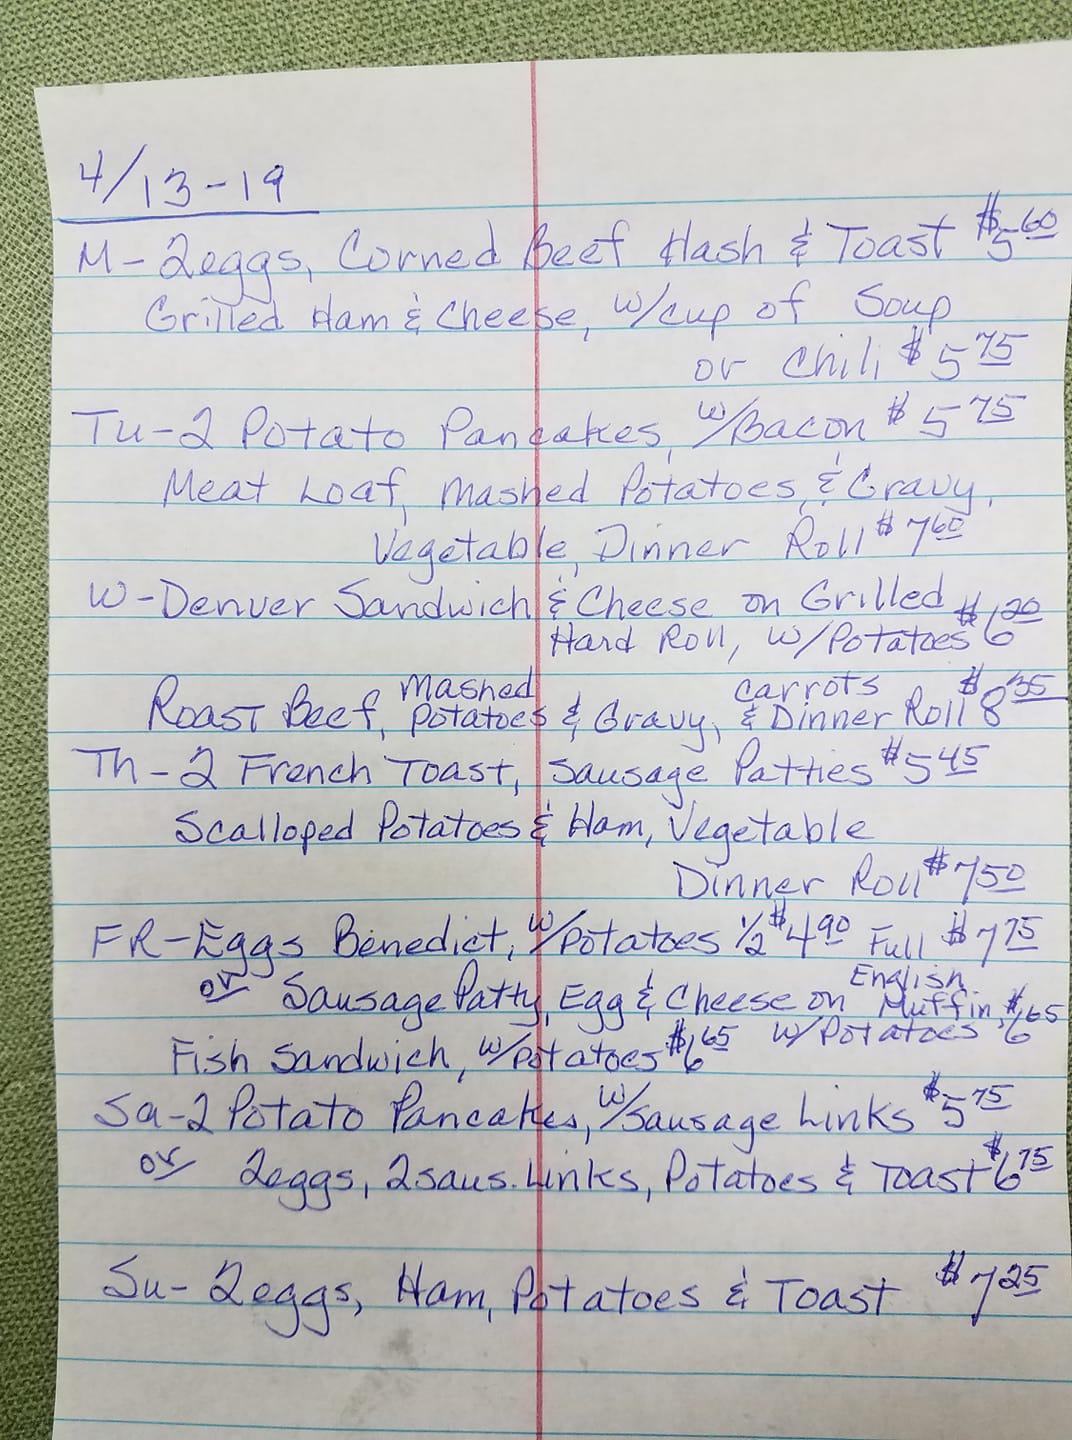 4/13-19
M-2eggs, Corned Beef Hash & Toast $5.60
Grilled Ham & Cheese, w/cup of Soup
or Chili $5.75
Tu-2 Potato Pancakes, w/Bacon $5.75
Meat Loaf, Mashed Potatoes, & Gravy,
Vegetable, Dinner Roll $7.60
W-Denver Sandwich & Cheese on Grilled
Hard Roll, w/Potatoes $6.20
Roast Beef, Mashed Potatoes & Gravy, Carrots & Dinner Roll $8.35
Th-2 French Toast, Sausage Patties $5.45
Scalloped Potatoes & Ham, Vegetable
Dinner Roll $7.50
FR-Eggs Benedict, w/Potatoes 1/2 $4.90 Full $7.75
or Sausage Patty, Egg & Cheese on English Muffin, $6.65
w/Potatoes
Fish Sandwich, w/Potatoes $6.65
Sa-2 Potato Pancakes, w/Sausage Links $5.75
or 2eggs, 2saus. Links, Potatoes & Toast $6.75
Su-2eggs, Ham, Potatoes & Toast $7.25